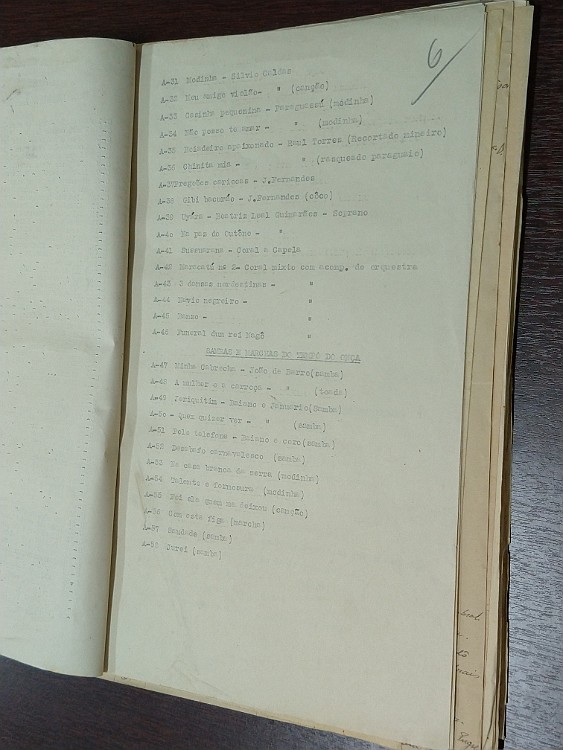 6
A-31 Modinha - Silvio Caldas
A-32 Meu amigo violão- " (canção)
A-33 Casinha pequenina - Paraguassú (modinha)
A-34 Não posso te amar - " (modinha)
A-35 Boiadeiro apaixonado - Raul Torres (Recortada mineiro)
A-36 Cainita mia - " (rasqueado paraguaio)
A-37Pregões cariocas - J.Fernandes
A-38 Gibi bacuráo - J.Fernandes (côco)
A-39 Uyára - Beatriz Leal Guimarães - Soprano
A-40 Na paz do Outôno - "
A-41 - Coral a Capela
A-42 Maracatú nº 2- Coral misto com acomp. de orquestra
A-43 3 dansas nordestinas - "
A-44 Navio negreiro - "
A-45 Dansa - "
A-46 Funeral dum rei Nagô "
SAMBAS E MARCHAS DO TEMPO DO ONÇA
A-47 Minha Cabrocha - João de Barro(samba)
A-48 A mulher e a carroça - " (toada)
A-49 Jeriquitim - Baiano e Januario(samba)
A-50 - Quem quizer ver - " (samba)
A-51 Pelo telefone - Baiano e coro(samba)
A-52 Desabafo carnavalesco (samba)
A-53 Na casa branca da serra (modinha)
A-54 Talento e formosura (modinha)
A-55 Foi ela quem me deixou (canção)
A-56 Com esta figa (marcha)
A-57 Saudade (samba)
Jurei (samba)